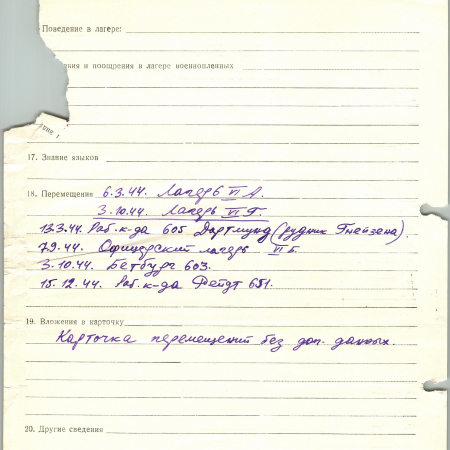 Поведение в лагере:
ния и поощрения в лагере военнопленных
ние
17. Знание языков
18. Перемещение 6.3.44. Лагерь VI А.
3.10.44. Лагерь VI Г.
13.3.44. Раб. к-да 605 Дортмунд (рудник Гнейзена).
7.9.44. Офицерский лагерь VI Б
3.10.44. Бетбург 603.
15.12.44. Раб. к-да Рейдт 651.
19. Вложения в карточку
Карточка перемещений без доп. данных.
20. Другие сведения